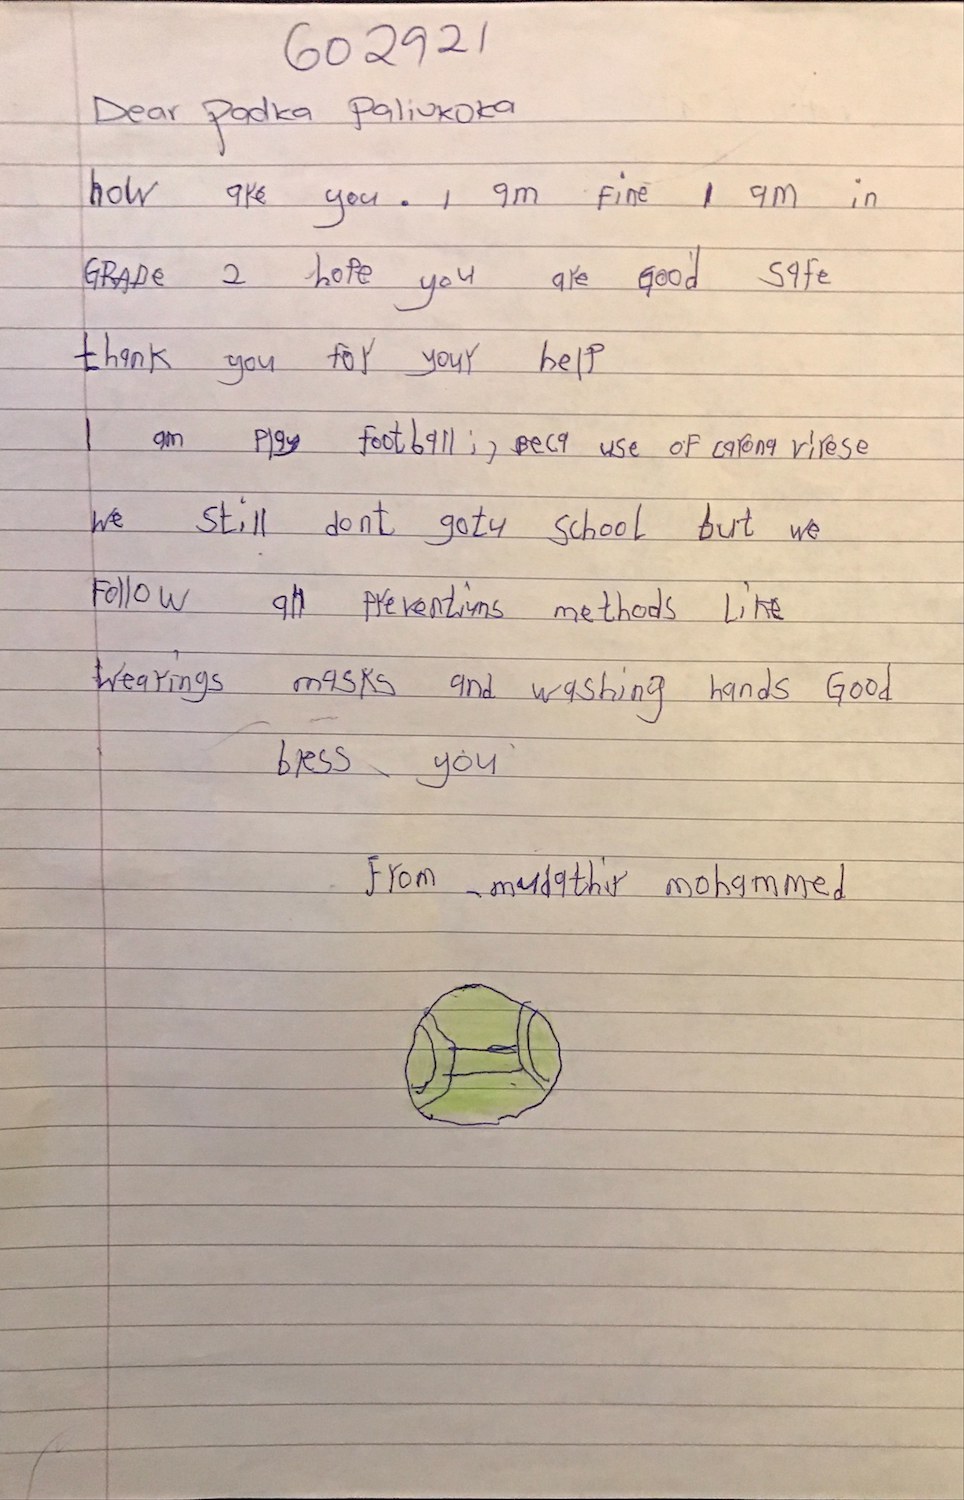 602921
Dear Padka Palivkoka
how are you. I am fine I am in
GRADE 2 hope you are good safe
thank you for your help
I am play football;, beca use of carona virese
we still dont gotu school but we
Follow all preventivns methods Like
Wearings masks and washing hands Good
bless you
From - mudathir mohammed